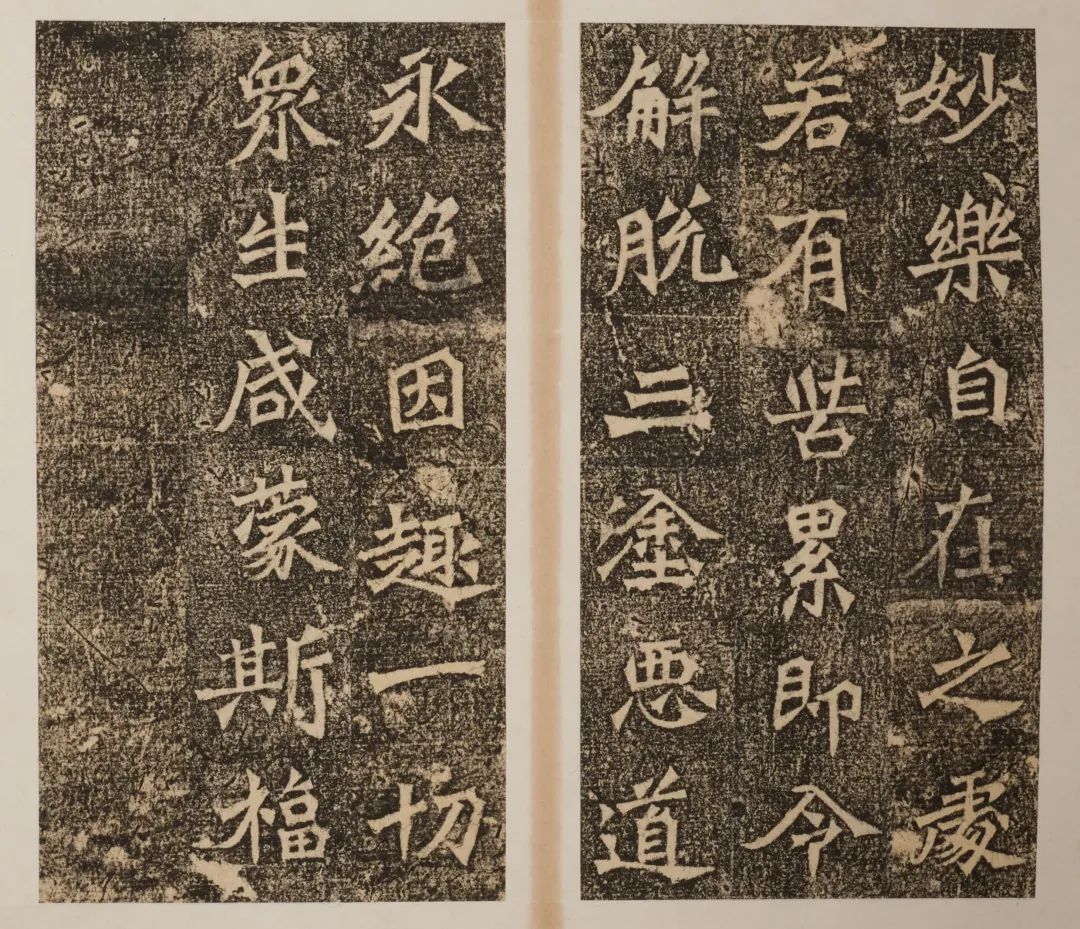 妙樂自在之處
若有苦累即令
解脫三塗惡道
永絕因趣一切
衆生咸蒙斯福